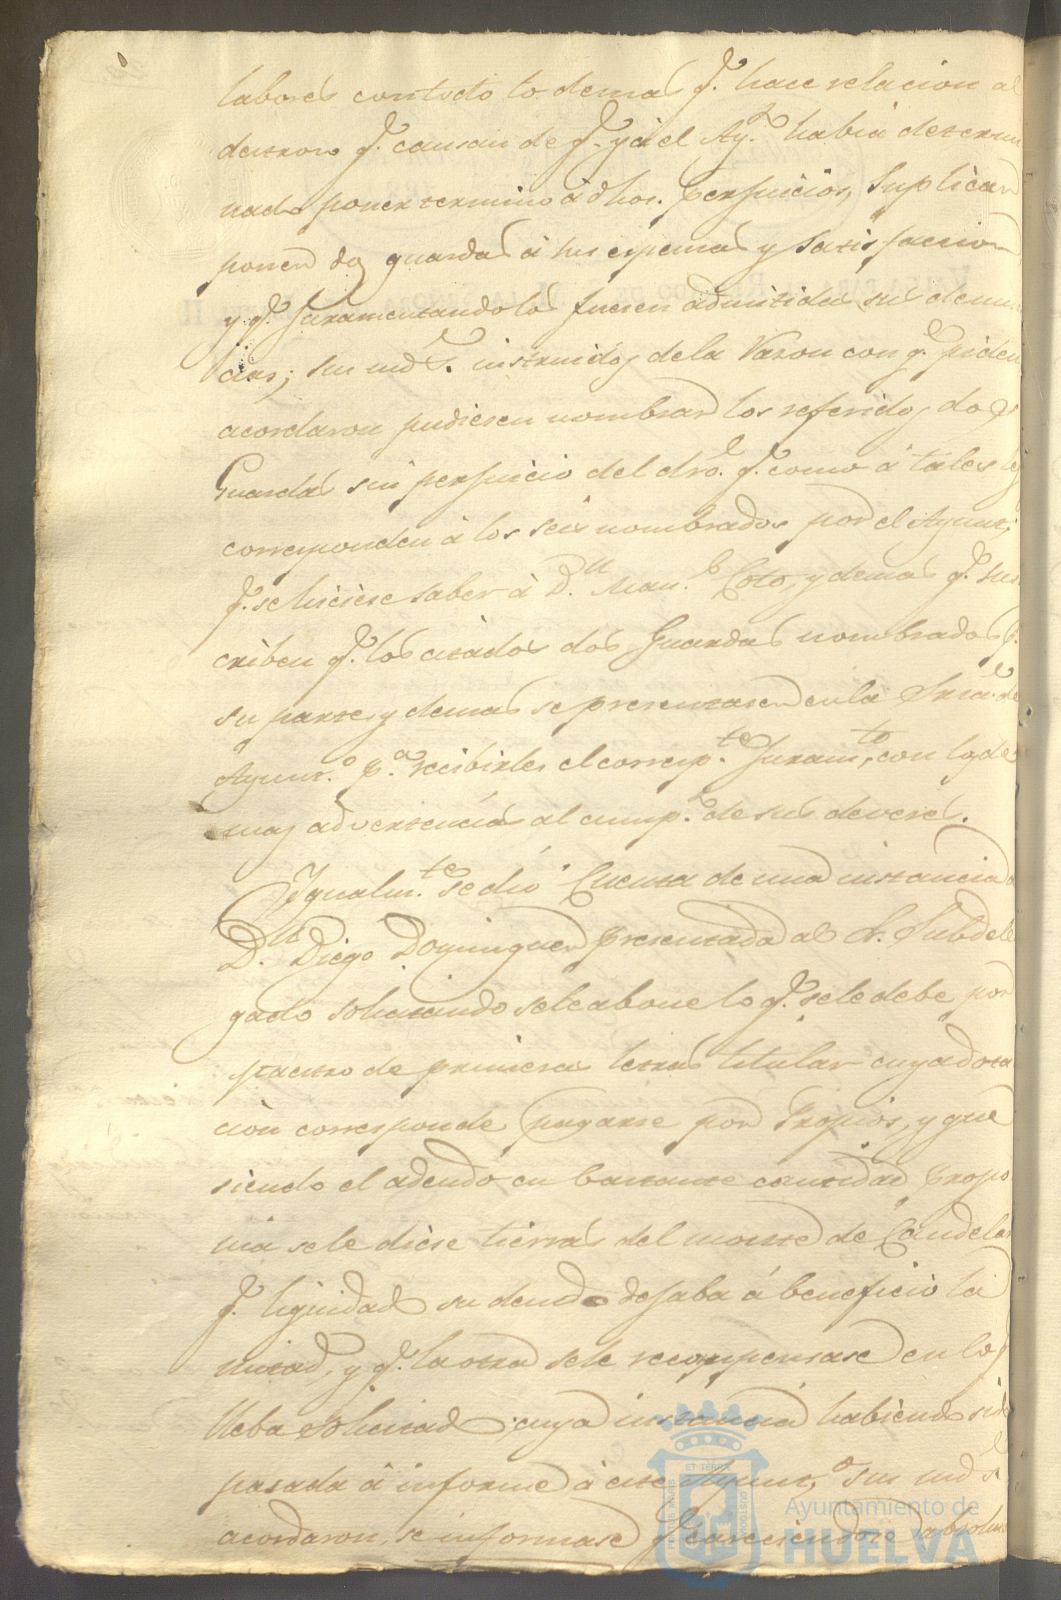 labores con todo lo demas q.e hace relacion al
destrozo q.e causan de q.e ya el Ay.to habia determi
nado poner termino á dhos. perjuicios, Suplican
ponen dos guardas á sus espensas y Satisfaccion
y q.e Juramentandolos fuesen admitidas sus denun
cias; sus md.s instruidos de la Razon con q.e piden
acordaron pudiesen nombrar los referidos dos
Guardas sin perjuicio del dro. q.e como á tales les
corresponden á los seis nombrados por el Ayunt.o
q.e se hiciese saber á D.n Man.l Coto, y demas q.e sus
criben q.e los citados dos Guardas nombrados p.r
su parte y demas se presentasen en la Sria. de
Ayunt.o p.a recibirles el corresp.te Juram.to con las de
mas advertencias al cump.to de sus deveres.
Ygualm.te se dió Cuenta de una instancia
D.n Diego Dominguez presentada al S. Subdele
gado solicitando se le abone lo q.e se le debe por
maestro de primeras letras titular cuya dota
ción corresponde pagarse por Propios, y que
siendo el adeudo en bastante cantidad propo
nia se le diese tierras del monte de Candelas
q.e liquidad su deuda dejaba á beneficio la
mitad, y q.e la otra se le recompensase en los
solicitad cuya instancia habiendo sido
pasada á informe á este Ayunt.o sus md.s
acordaron se informase q.e careciendose absolu
Ayuntamiento de
HUELVA